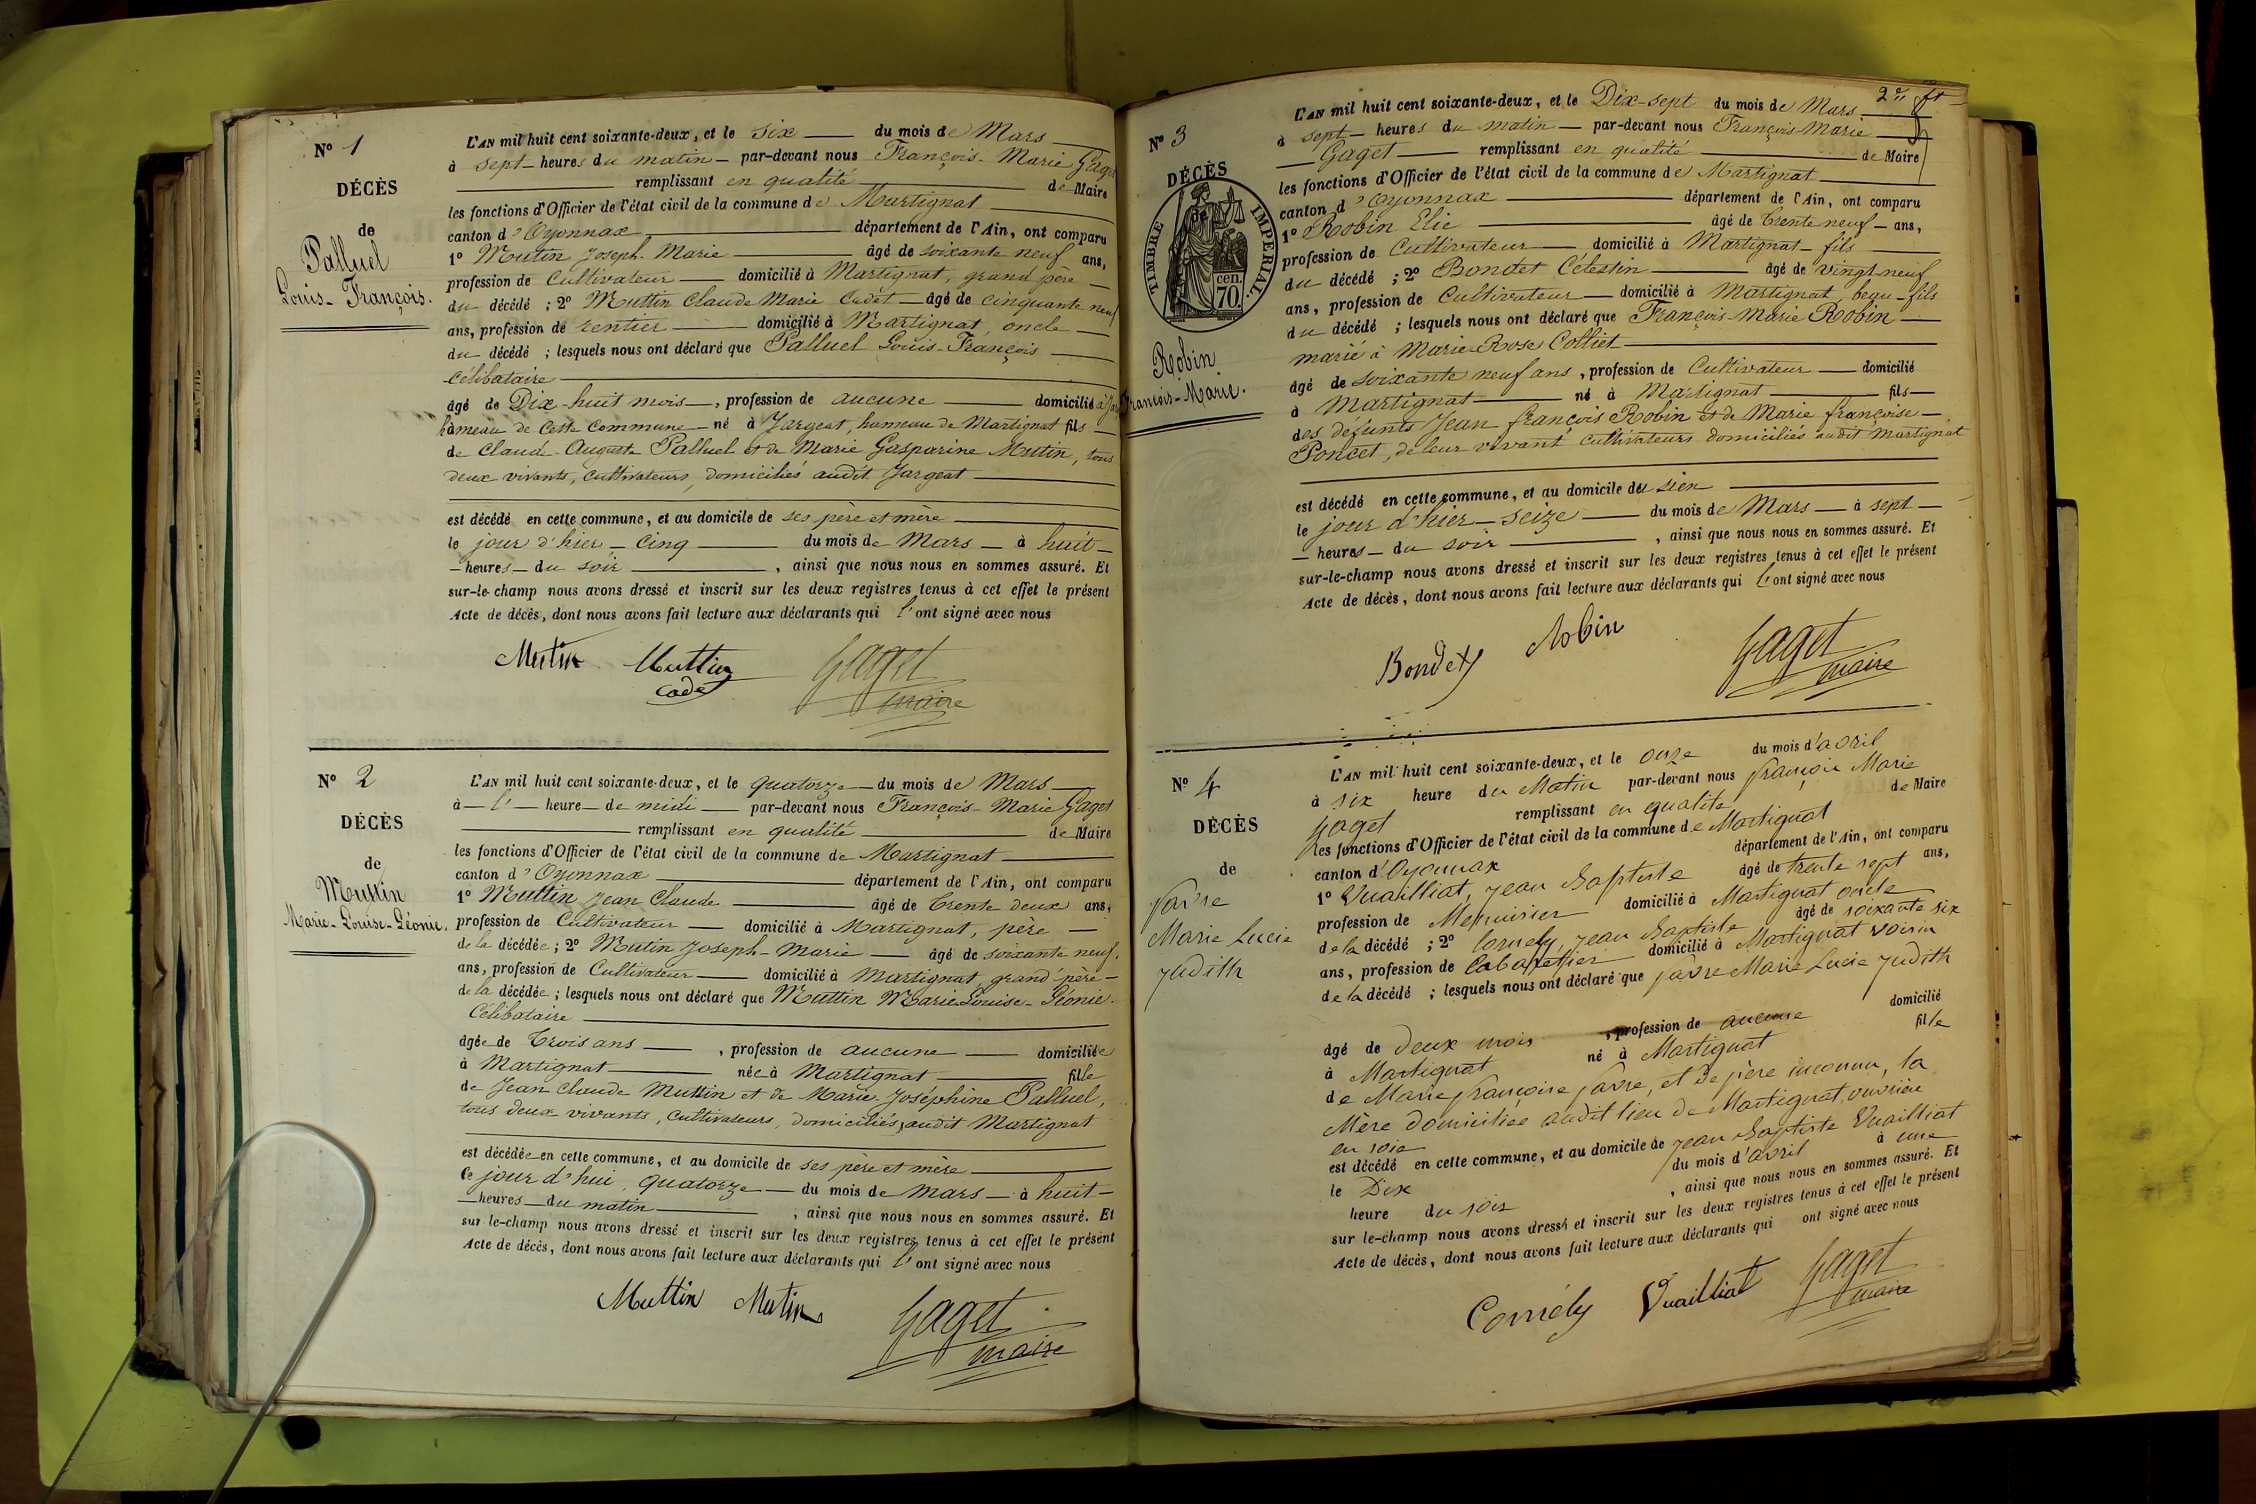 N° 1
DÉCÈS
de
Palluel
Louis-François.
L'AN mil huit cent soixante-deux, et le six du mois de Mars
à sept heures du matin par-devant nous François-Marie Gaget
remplissant en qualité de Maire
les fonctions d'Officier de l'état civil de la commune de Martignat
canton d'Oyonnax département de l'Ain, ont comparu
1° Mutin Joseph-Marie âgé de soixante neuf ans,
profession de Cultivateur domicilié à Martignat, grand père
du décédé ; 2° Muttin Claude Marie Cadet âgé de cinquante neuf
ans, profession de rentier domicilié à Martignat, oncle
du décédé ; lesquels nous ont déclaré que Palluel Louis-François
célibataire
âgé de Dix-huit mois, profession de aucune domicilié à
hameau de cette commune né à Jargeat, hameau de Martignat fils
de Claude-Auguste Palluel et de Marie Gasparine Mutin, tous
deux vivants, cultivateurs, domiciliés audit Jargeat
est décédé en cette commune, et au domicile de ses père et mère
le jour d'hier cinq du mois de Mars à huit
heures du soir, ainsi que nous nous en sommes assuré. Et
sur-le-champ nous avons dressé et inscrit sur les deux registres tenus à cet effet le présent
Acte de décès, dont nous avons fait lecture aux déclarants qui l'ont signé avec nous
Mutin Muttin Gaget
cadet maire
N° 2
DÉCÈS
de
Muttin
Marie-Louise-Léonie.
L'AN mil huit cent soixante-deux, et le quatorze du mois de Mars
à l' heure de midi par-devant nous François-Marie Gaget
remplissant en qualité de Maire
les fonctions d'Officier de l'état civil de la commune de Martignat
canton d'Oyonnax département de l'Ain, ont comparu
1° Muttin Jean Claude âgé de trente deux ans,
profession de Cultivateur domicilié à Martignat, père
de la décédée ; 2° Mutin Joseph-Marie âgé de soixante neuf
ans, profession de Cultivateur domicilié à Martignat, grand père
de la décédée ; lesquels nous ont déclaré que Muttin Marie Louise-Léonie.
Célibataire
âgée de trois ans, profession de aucune domiciliée
à Martignat née à Martignat fille
de Jean Claude Muttin et de Marie-Joséphine Palluel,
tous deux vivants, cultivateurs, domiciliés audit Martignat
est décédée en cette commune, et au domicile de ses père et mère
ce jour d'hui, quatorze du mois de Mars à huit
heures du matin, ainsi que nous nous en sommes assuré. Et
sur le-champ nous avons dressé et inscrit sur les deux registres tenus à cet effet le présent
Acte de décès, dont nous avons fait lecture aux déclarants qui l'ont signé avec nous
Muttin Mutin Gaget
maire
2e ft
N° 3
DÉCÈS
de
TIMBRE IMPERIAL.
70 cen.
Robin
François-Marie.
L'AN mil huit cent soixante-deux, et le Dix-sept du mois de Mars
à sept heures du matin par-devant nous François-Marie
Gaget remplissant en qualité de Maire
les fonctions d'Officier de l'état civil de la commune de Martignat
canton d'Oyonnax département de l'Ain, ont comparu
1° Robin Elie âgé de trente neuf ans,
profession de Cultivateur domicilié à Martignat fils
du décédé ; 2° Bondet Célestin âgé de vingt neuf
ans, profession de Cultivateur domicilié à Martignat, beau-fils
du décédé ; lesquels nous ont déclaré que François-Marie Robin
marié à Marie-Rose Colliet
âgé de soixante neuf ans, profession de Cultivateur domicilié
à Martignat né à Martignat fils
des défunts Jean françois Robin et de Marie françoise
Poncet, de leur vivant cultivateurs domiciliés audit Martignat
est décédé en cette commune, et au domicile du sien
le jour d'hier seize du mois de Mars à sept
heures du soir, ainsi que nous nous en sommes assuré. Et
sur-le-champ nous avons dressé et inscrit sur les deux registres tenus à cet effet le présent
Acte de décès, dont nous avons fait lecture aux déclarants qui l'ont signé avec nous
Bondet Robin Gaget
maire
N° 4
DÉCÈS
de
favre
Marie Lucie
Judith
L'AN mil huit cent soixante-deux, et le onze du mois d'avril
à six heure du Matin par-devant nous françois Marie
Gaget remplissant en qualité de Maire
les fonctions d'Officier de l'état civil de la commune de Martignat
canton d'Oyonnax département de l'Ain, ont comparu
1° Vuailliat, Jean Baptiste âgé de trente sept ans,
profession de Menuisier domicilié à Martignat oncle
de la décédé ; 2° Cornely, Jean Baptiste âgé de soixante six
ans, profession de Cabaretier domicilié à Martignat voisin
de la décédé ; lesquels nous ont déclaré que favre Marie Lucie Judith
âgé de deux mois, profession de aucune domicilié
à Martignat né à Martignat fille
de Marie françoise favre, et de père inconnu, la
Mère domiciliée audit lieu de Martignat, ouvrière
en soie
est décédé en cette commune, et au domicile de Jean Baptiste Vuailliat
le Dix du mois d'avril à une
heure du soir, ainsi que nous nous en sommes assuré. Et
sur le-champ nous avons dressé et inscrit sur les deux registres tenus à cet effet le présent
Acte de décès, dont nous avons fait lecture aux déclarants qui ont signé avec nous
Cornély Vuailliat Gaget
maire